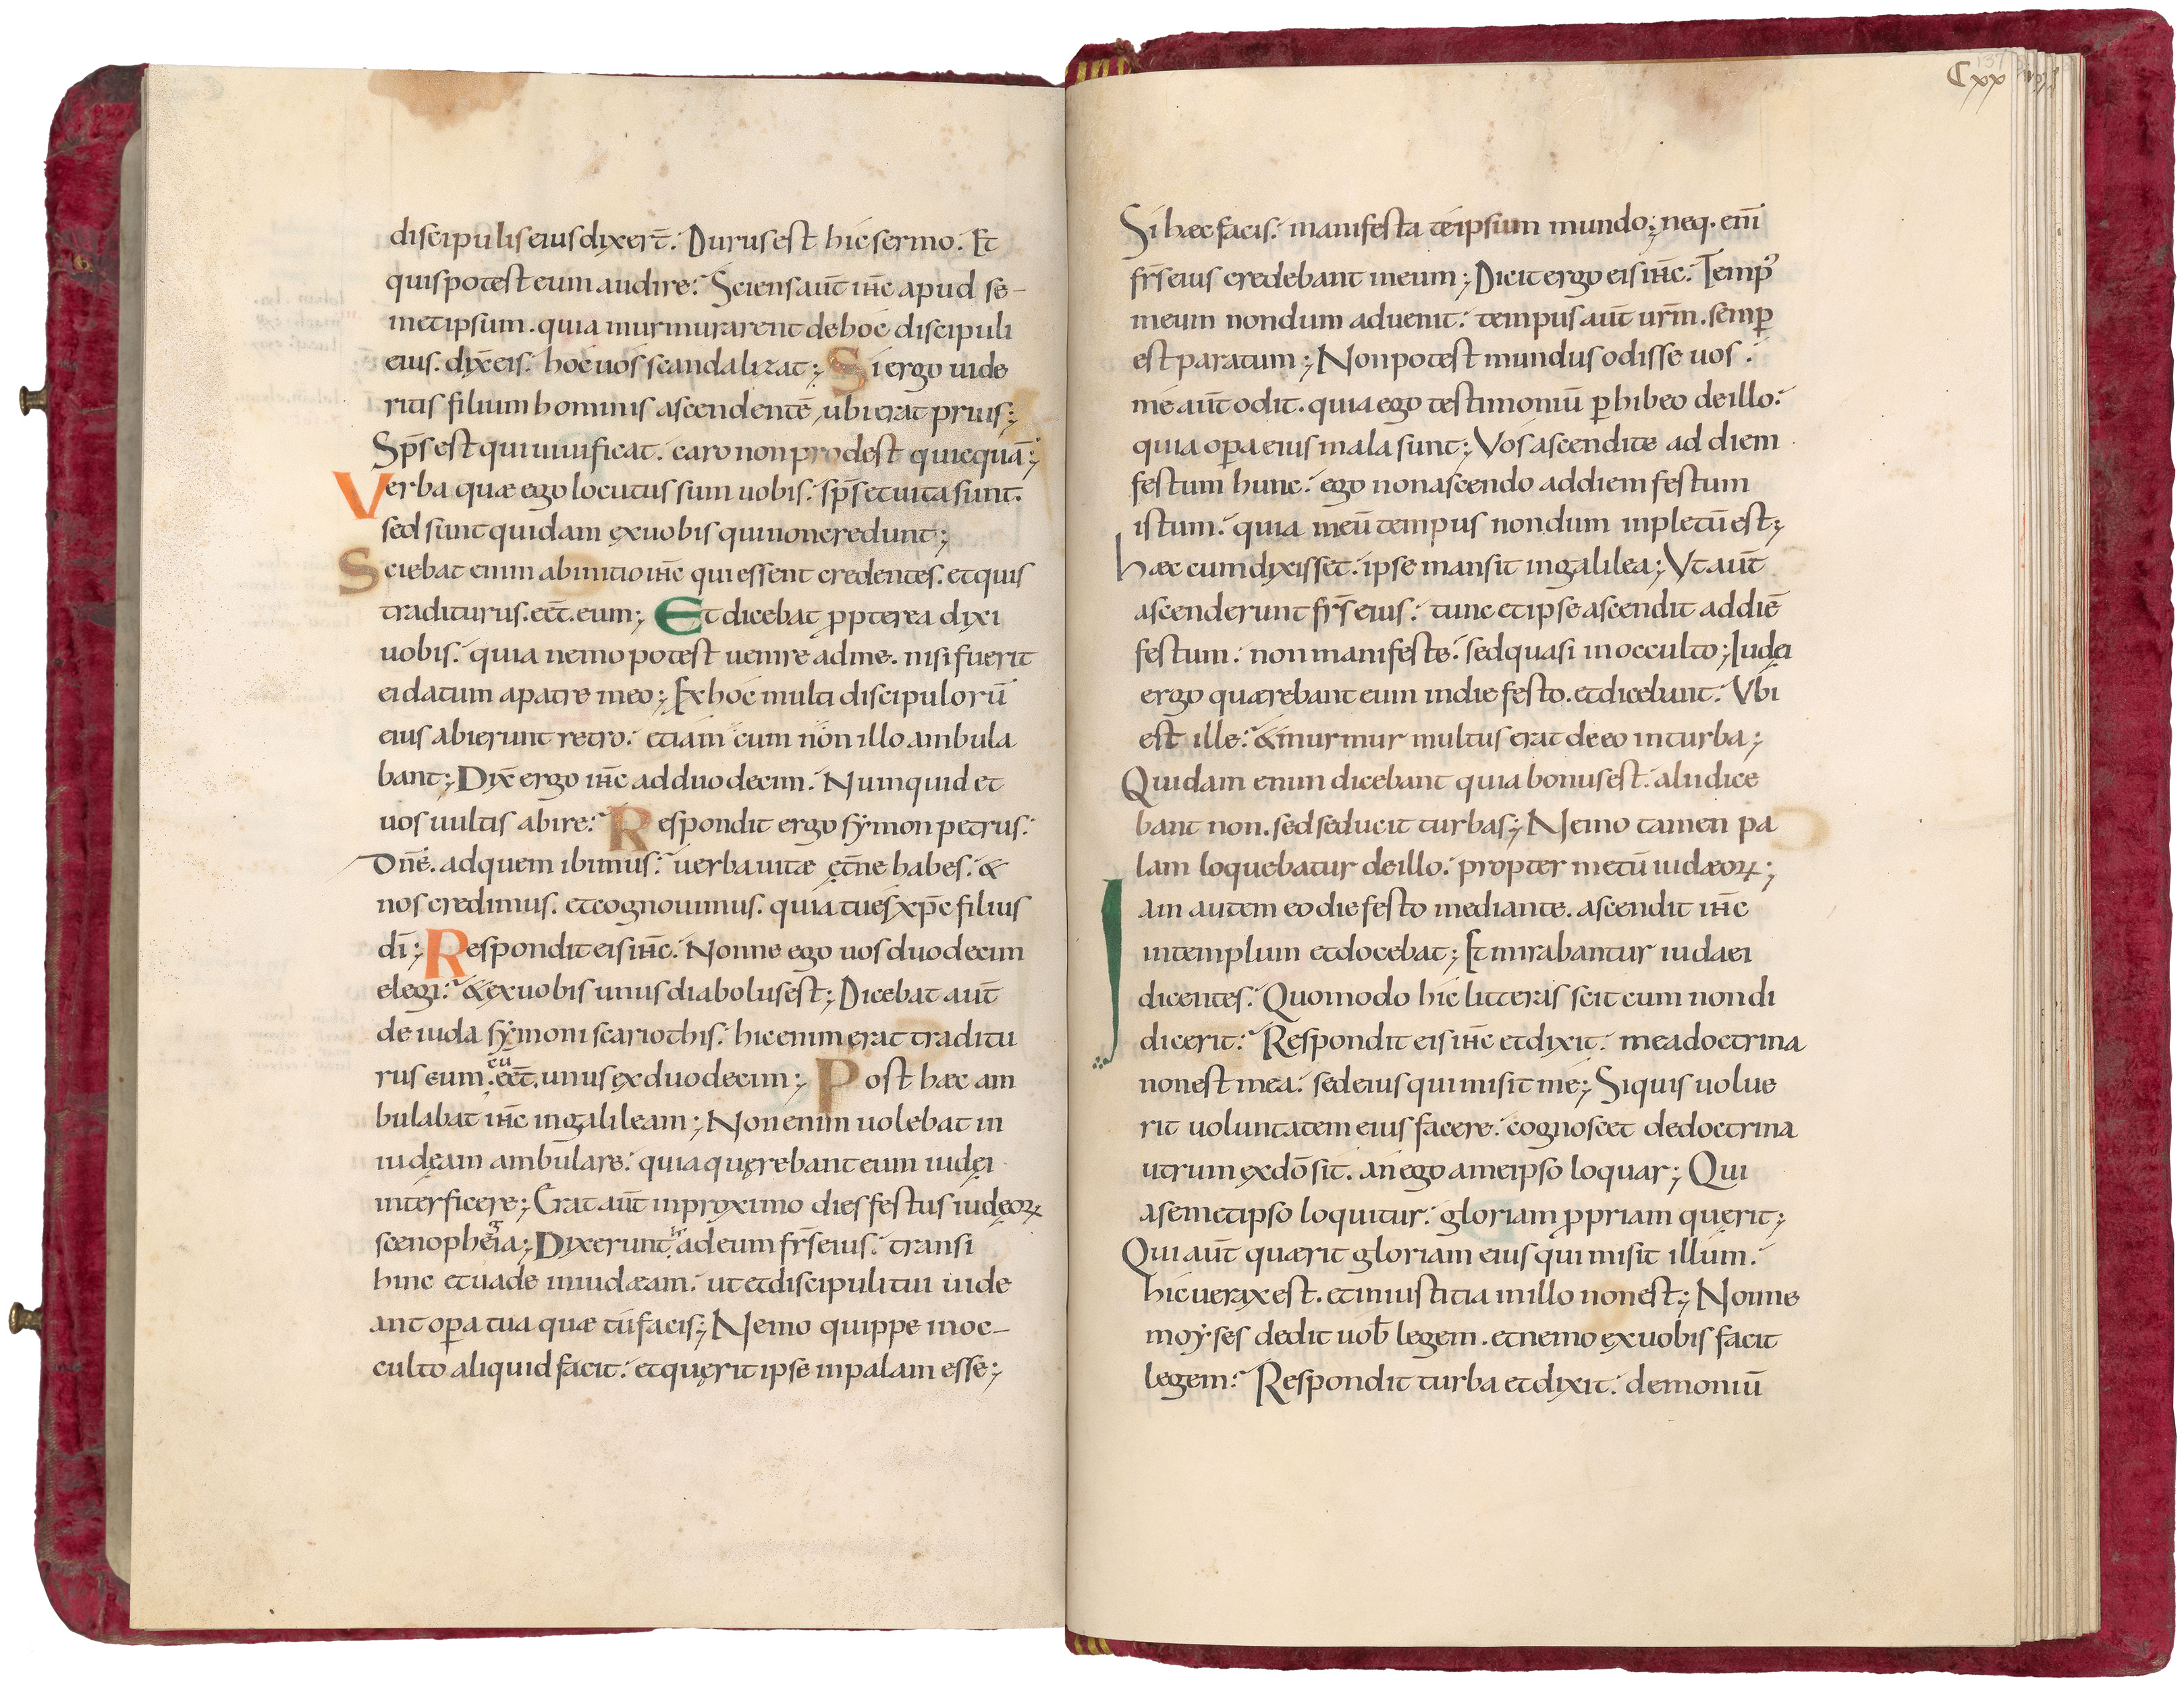 discipuli eius dixer̄t. Durus est hic sermo. Et
quis potest eum audire? Sciens aūt ihc̄ apud se-
metipsum. quia murmurarent de hoc discipuli
eius. dix̄ eis. hoc uos scandalizat; Si ergo uide
ritis filium hominis ascendentē ubi erat prius;
Sp̄s est qui uiuificat. caro non prodest quicquā;
Verba quæ ego locutus sum uobis. sp̄s et uita sunt.
sed sunt quidam ex uobis qui non credunt;
Sciebat enim ab initio ihc̄ qui essent credentes. et quis
traditurus. eēt. eum; Et dicebat ꝓpterea dixi
uobis. quia nemo potest uenire ad me. nisi fuerit
ei datum a patre meo; Ex hoc multi discipulorū
eius abierunt retro. etiam cum non illo ambula
bant; Dix̄ ergo ihc̄ ad duodecim. Numquid et
uos uultis abire? Respondit ergo sẏmon petrus.
Dn̄e. ad quem ibimus? uerba uitæ ęt̄ne habes. &
nos credimus. et cognouimus. quia tu es xp̄c filius
dī; Respondit eis ihc̄. Nonne ego uos duodecim
elegi? & ex uobis unus diabolus est; Dicebat aūt
de iuda sẏmoni scariothis. hic enim erat traditu
rus eum. cū eēt. unus ex duodecim; Post hæc am
bulabat ihc̄ in galileam; Non enim uolebat in
iudęam ambulare. quia quęrebant eum iudęi
interficere; Erat aūt in proximo dies festus iudęoꝝ
scenophegia; Dixerunt ad eum fr̄s eius. transi
hinc et uade in iudæam. ut et discipuli tui uide
ant oꝑa tua quæ tu facis; Nemo quippe in oc-
culto aliquid facit. et quęrit ipse in palam esse;
Cxx
137
Si hæc facis. manifesta te ipsum mundo; neq. enī
fr̄s eius credebant in eum; Dicit ergo eis ihc̄. Temp᾽
meum nondum aduenit. tempus aūt ur̄m. semꝑ
est paratum; Non potest mundus odisse uos.
me aūt odit. quia ego testimoniū ꝑhibeo de illo.
quia oꝑa eius mala sunt; Vos ascendite ad diem
festum hunc. ego non ascendo ad diem festum
istum. quia meū tempus nondum inpletū est;
hæc cum dixisset. ipse mansit in galilea; Vt aūt
ascenderunt fr̄s eius. tunc et ipse ascendit ad diē
festum. non manifeste. sed quasi in occulto; Iudęi
ergo quærebant eum in die festo. et dicebant. Vbi
est ille? & murmur multus erat de eo in turba;
Quidam enim dicebant quia bonus est. alii dice
bant non. sed seducit turbas; Nemo tamen pa
lam loquebatur de illo. propter metū iudæoꝝ;
Iam autem eo die festo mediante. ascendit ihc̄
in templum et docebat; Et mirabantur iudaei
dicentes. Quomodo hic litteras scit cum non di
dicerit? Respondit eis ihc̄ et dixit. mea doctrina
non est mea. sed eius qui misit me; Si quis uolue
rit uoluntatem eius facere. cognoscet de doctrina
utrum ex dō sit. an ego a me ipso loquar; Qui
a semetipso loquitur. gloriam ꝓpriam quęrit;
Qui aūt quærit gloriam eius qui misit illum.
hic uerax est. et iniustitia in illo non est; Nonne
moẏses dedit uob̄ legem. et nemo ex uobis facit
legem? Respondit turba et dixit. demoniū